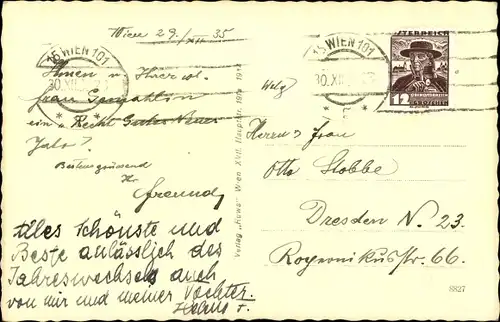 Wien 29./XII 35
Ihnen u. Ihrer w.
Frau Gemahlin
ein „Recht Gutes Neues
Jahr“.
Bestens grüssend
Ihr
Freund
Alles Schönste und
Beste anlässlich des
Jahreswechsels auch
von mir und meiner Tochter.
15 WIEN 101
30.XII.
Verlag „Hewa“ Wien XVII. Hauptstr.
15 WIEN 101
30.XII.
ÖSTERREICH
12
GROSCHEN
Herrn u. Frau
Otto Stobbe
Dresden N. 23.
Str. 66.
8827